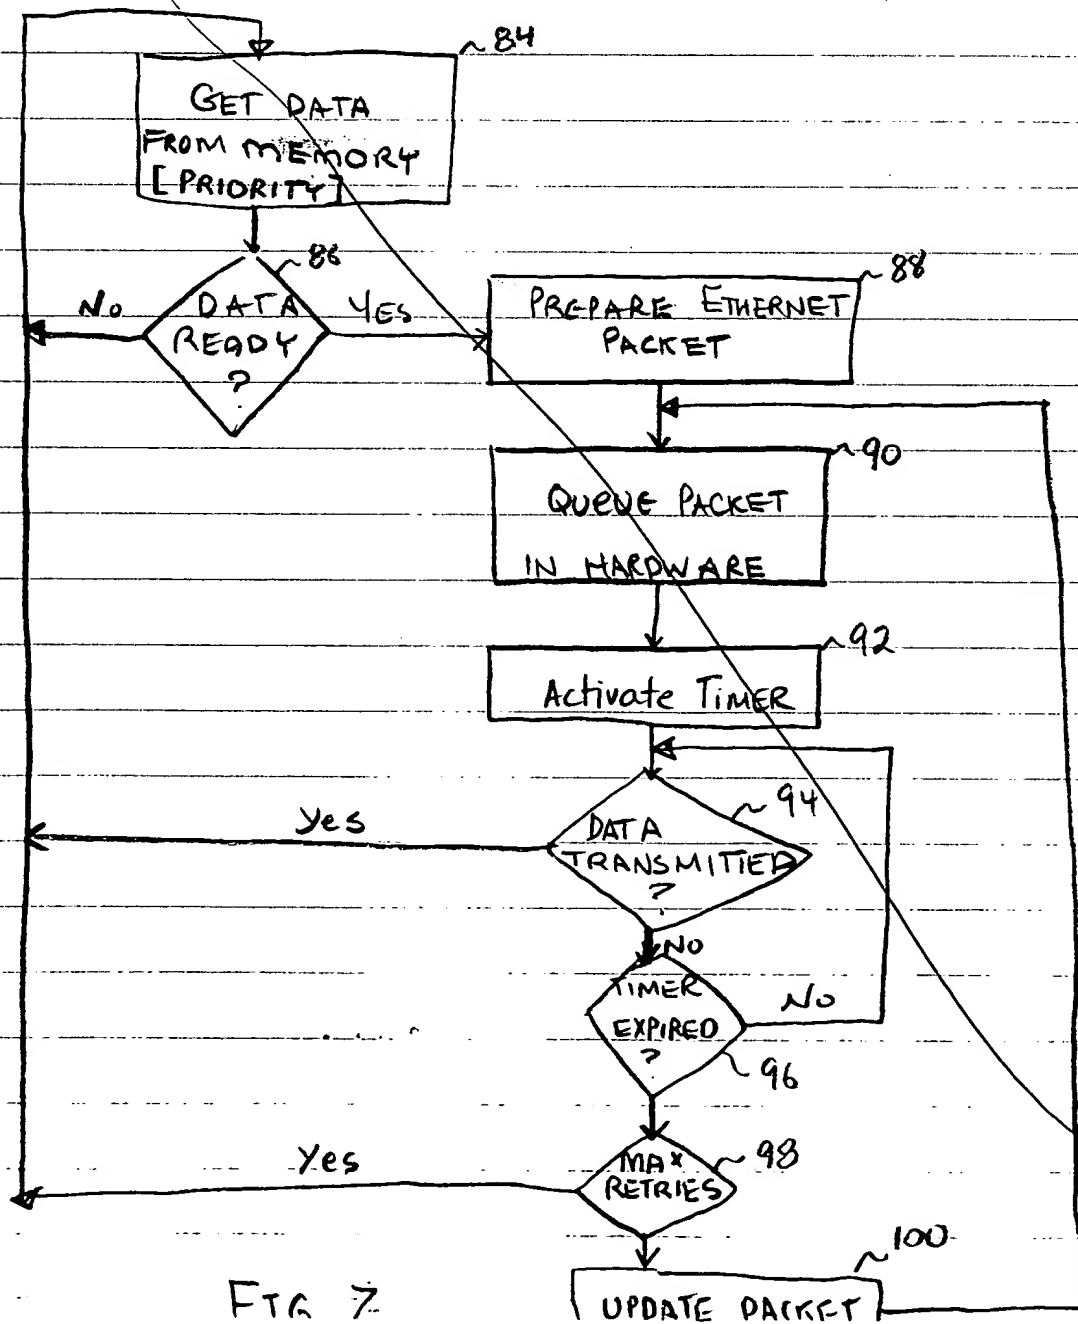 84
GET DATA
FROM MEMORY
[PRIORITY]
86
DATA
READY
?
No
YES
88
PREPARE ETHERNET
PACKET
90
QUEUE PACKET
IN HARDWARE
92
Activate TIMER
94
DATA
TRANSMITTED
?
Yes
NO
TIMER
EXPIRED
?
No
96
MAX
RETRIES
98
Yes
100
UPDATE PACKET
FIG 7